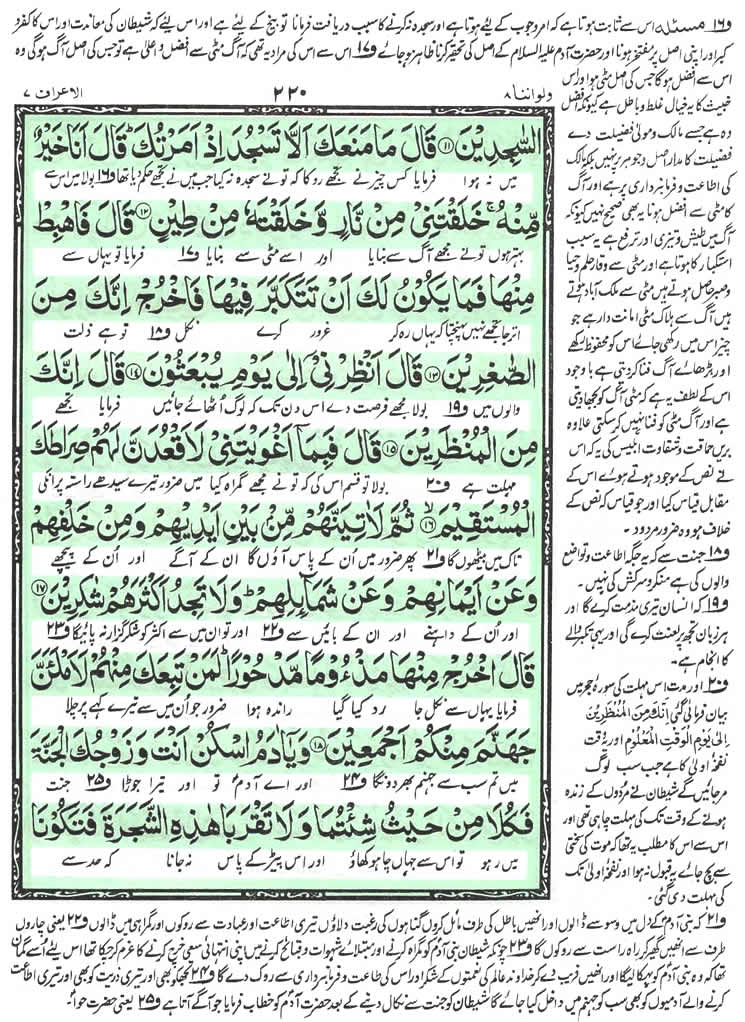 و۱۶ مسئلہ اس سے ثابت ہوتا ہے کہ امر وجوب کے لیٔے ہوتا ہے اور سجدہ نہ کرنے کا سبب دریافت فرمانا توبیخ کے لیٔے ہے اور اس لیٔے کہ شیطان کی معاندت اور اس کا کفر و
کبر اور اپنی اصل پر مفتخر ہونا اور حضرت آدم علیہ السلام کے اصل کی تحقیر کرنا ظاہر ہو جائے و۱۷ اس سے اس کی مراد یہ تھی کہ آگ مٹی سے افضل و اعلیٰ ہے تو جس کی اصل آگ ہوگی وہ
ولواننا ۸ ۲۲۰ الاعراف ۷
السّٰجِدِيْنَ ۝۱۱ قَالَ مَا مَنَعَكَ اَلَّا تَسْجُدَ اِذْ اَمَرْتُكَ ؕ قَالَ اَنَا خَيْرٌ
میں نہ ہوا فرمایا کس چیز نے تجھے روکا کہ تو نے سجدہ نہ کیا جب میں نے تجھے حکم دیا تھا و۱۶ بولا میں اس سے
مِّنْهُ ۚ خَلَقْتَنِيْ مِنْ نَّارٍ وَّخَلَقْتَهٗ مِنْ طِيْنٍ ۝۱۲ قَالَ فَاهْبِطْ
بہتر ہوں تو نے مجھے آگ سے بنایا اور اسے مٹی سے بنایا و۱۷ فرمایا تو یہاں سے
مِنْهَا فَمَا يَكُوْنُ لَكَ اَنْ تَتَكَبَّرَ فِيْهَا فَاخْرُجْ اِنَّكَ مِنَ
اتر جا تجھے نہیں پہنچتا کہ یہاں رہ کر غرور کرے نکل و۱۸ تو ہے ذلت
الصّٰغِرِيْنَ ۝۱۳ قَالَ اَنْظِرْنِيْۤ اِلٰى يَوْمِ يُبْعَثُوْنَ ۝۱۴ قَالَ اِنَّكَ
والوں میں و۱۹ بولا مجھے فرصت دے اس دن تک کہ لوگ اُٹھائے جائیں فرمایا تجھے
مِنَ الْمُنْظَرِيْنَ ۝۱۵ قَالَ فَبِمَاۤ اَغْوَيْتَنِيْ لَاَقْعُدَنَّ لَهُمْ صِرَاطَكَ
مہلت ہے و۲۰ بولا تو قسم اس کی کہ تو نے مجھے گمراہ کیا میں ضرور تیرے سیدھے راستہ پر انکی
الْمُسْتَقِيْمَ ۝۱۶ ثُمَّ لَاٰتِيَنَّهُمْ مِّنْۢ بَيْنِ اَيْدِيْهِمْ وَمِنْ خَلْفِهِمْ
تاک میں بیٹھوں گا و۲۱ پھر ضرور میں اُن کے پاس آؤں گا ان کے آگے اور اُن کے پیچھے
وَعَنْ اَيْمَانِهِمْ وَعَنْ شَمَآئِلِهِمْ ؕ وَلَا تَجِدُ اَكْثَرَهُمْ شٰكِرِيْنَ ۝۱۷
اور اُن کے داہنے اور ان کے بائیں سے و۲۲ اور تو ان میں سے اکثر کو شکر گزار نہ پائیگا و۲۳
قَالَ اخْرُجْ مِنْهَا مَذْءُوْمًا مَّدْحُوْرًا ؕ لَمَنْ تَبِعَكَ مِنْهُمْ لَاَمْلَئَنَّ
فرمایا یہاں سے نکل جا رد کیا گیا راندہ ہوا ضرور جو اُن میں سے تیرے کہے پر چلا
جَهَنَّمَ مِنْكُمْ اَجْمَعِيْنَ ۝۱۸ وَيٰۤاٰدَمُ اسْكُنْ اَنْتَ وَزَوْجُكَ الْجَنَّةَ
میں تم سب سے جہنم بھر دونگا و۲۴ اور اے آدم تو اور تیرا جوڑا و۲۵ جنت
فَكُلَا مِنْ حَيْثُ شِئْتُمَا وَلَا تَقْرَبَا هٰذِهِ الشَّجَرَةَ فَتَكُوْنَا
میں رہو تو اس سے جہاں چاہو کھاؤ اور اس پیڑ کے پاس نہ جانا کہ حد سے
اس سے افضل ہوگا جس کی اصل مٹی ہو اور اس
خبیث کا یہ خیال غلط و باطل ہے کیونکہ افضل
وہ ہے جسے مالک و مولیٰ فضیلت دے
فضیلت کا مدار اصل و جوہر پر نہیں بلکہ مالک
کی اطاعت و فرمانبرداری پر ہے اور آگ
کا مٹی سے افضل ہونا یہ بھی صحیح نہیں کیونکہ
آگ میں طیش و تیزی اور ترفع ہے یہ سبب
استکبار کا ہوتا ہے اور مٹی سے وقار حلم و حیا
و صبر حاصل ہوتے ہیں مٹی سے ملک آباد ہوتے
ہیں آگ سے ہلاک مٹی امانت دار ہے جو
چیز اس میں رکھی جائے اس کو محفوظ رکھے
اور بڑھائے آگ فنا کر دیتی ہے باوجود
اس کے لطف یہ ہے کہ مٹی آگ کو بجھا دیتی
ہے اور آگ مٹی کو فنا نہیں کر سکتی علاوہ
بریں حماقت و شقاوت ابلیس کی یہ کہ اس
نے نص کے موجود ہوتے ہوئے اس کے
مقابل قیاس کیا اور جو قیاس کہ نص کے
خلاف ہو وہ ضرور مردود۔
و۱۸ جنت سے کہ یہ جگہ اطاعت و تواضع
والوں کی ہے منکر و سرکش کی نہیں۔
و۱۹ کہ انسان تیری مذمت کرے گا اور
ہر زبان تجھ پر لعنت کرے گی اور یہی تکبر والے
کا انجام ہے۔
و۲۰ اور مدت اس مہلت کی سورۂ حجر میں
بیان فرمائی گئی اِنَّكَ مِنَ الْمُنْظَرِيْنَ
اِلٰى يَوْمِ الْوَقْتِ الْمَعْلُوْمِ اور یہ وقت
نفخۂ اولیٰ کا ہے جب سب لوگ
مر جائیں گے شیطان نے مُردوں کے زندہ
ہونے کے وقت تک کی مہلت چاہی تھی اور
اس سے اس کا مطلب یہ تھا کہ موت کی سختی
سے بچ جائے یہ قبول نہ ہوا اور نفخۂ اولیٰ تک
کی مہلت دی گئی۔
و۲۱ کہ بنی آدم کے دل میں وسوسے ڈالوں اور انھیں باطل کی طرف مائل کروں گناہوں کی رغبت دلاؤں تیری اطاعت اور عبادت سے روکوں اور گمراہی میں ڈالوں و۲۲ یعنی چاروں
طرف سے انھیں گھیر کر راہِ راست سے روکوں گا و۲۳ چونکہ شیطان بنی آدم کو گمراہ کرنے اور مبتلائے شہوات و قبائح کرنے میں اپنی انتہائی سعی خرچ کرنے کا عزم کر چکا تھا اس لیٔے اُسے گمان
تھا کہ وہ بنی آدم کو بہکا لیگا اور انھیں فریب دے کر خداوندِ عالم کی نعمتوں کے شکر اور اس کی طاعت و فرمانبرداری سے روک دے گا و۲۴ تجھکو بھی اور تیری ذریت کو بھی اور تیری اطاعت
کرنے والے آدمیوں کو بھی سب کو جہنم میں داخل کیا جائے گا شیطان کو جنت سے نکال دینے کے بعد حضرت آدم کو خطاب فرمایا جو آگے آتا ہے و۲۵ یعنی حضرت حوا۔